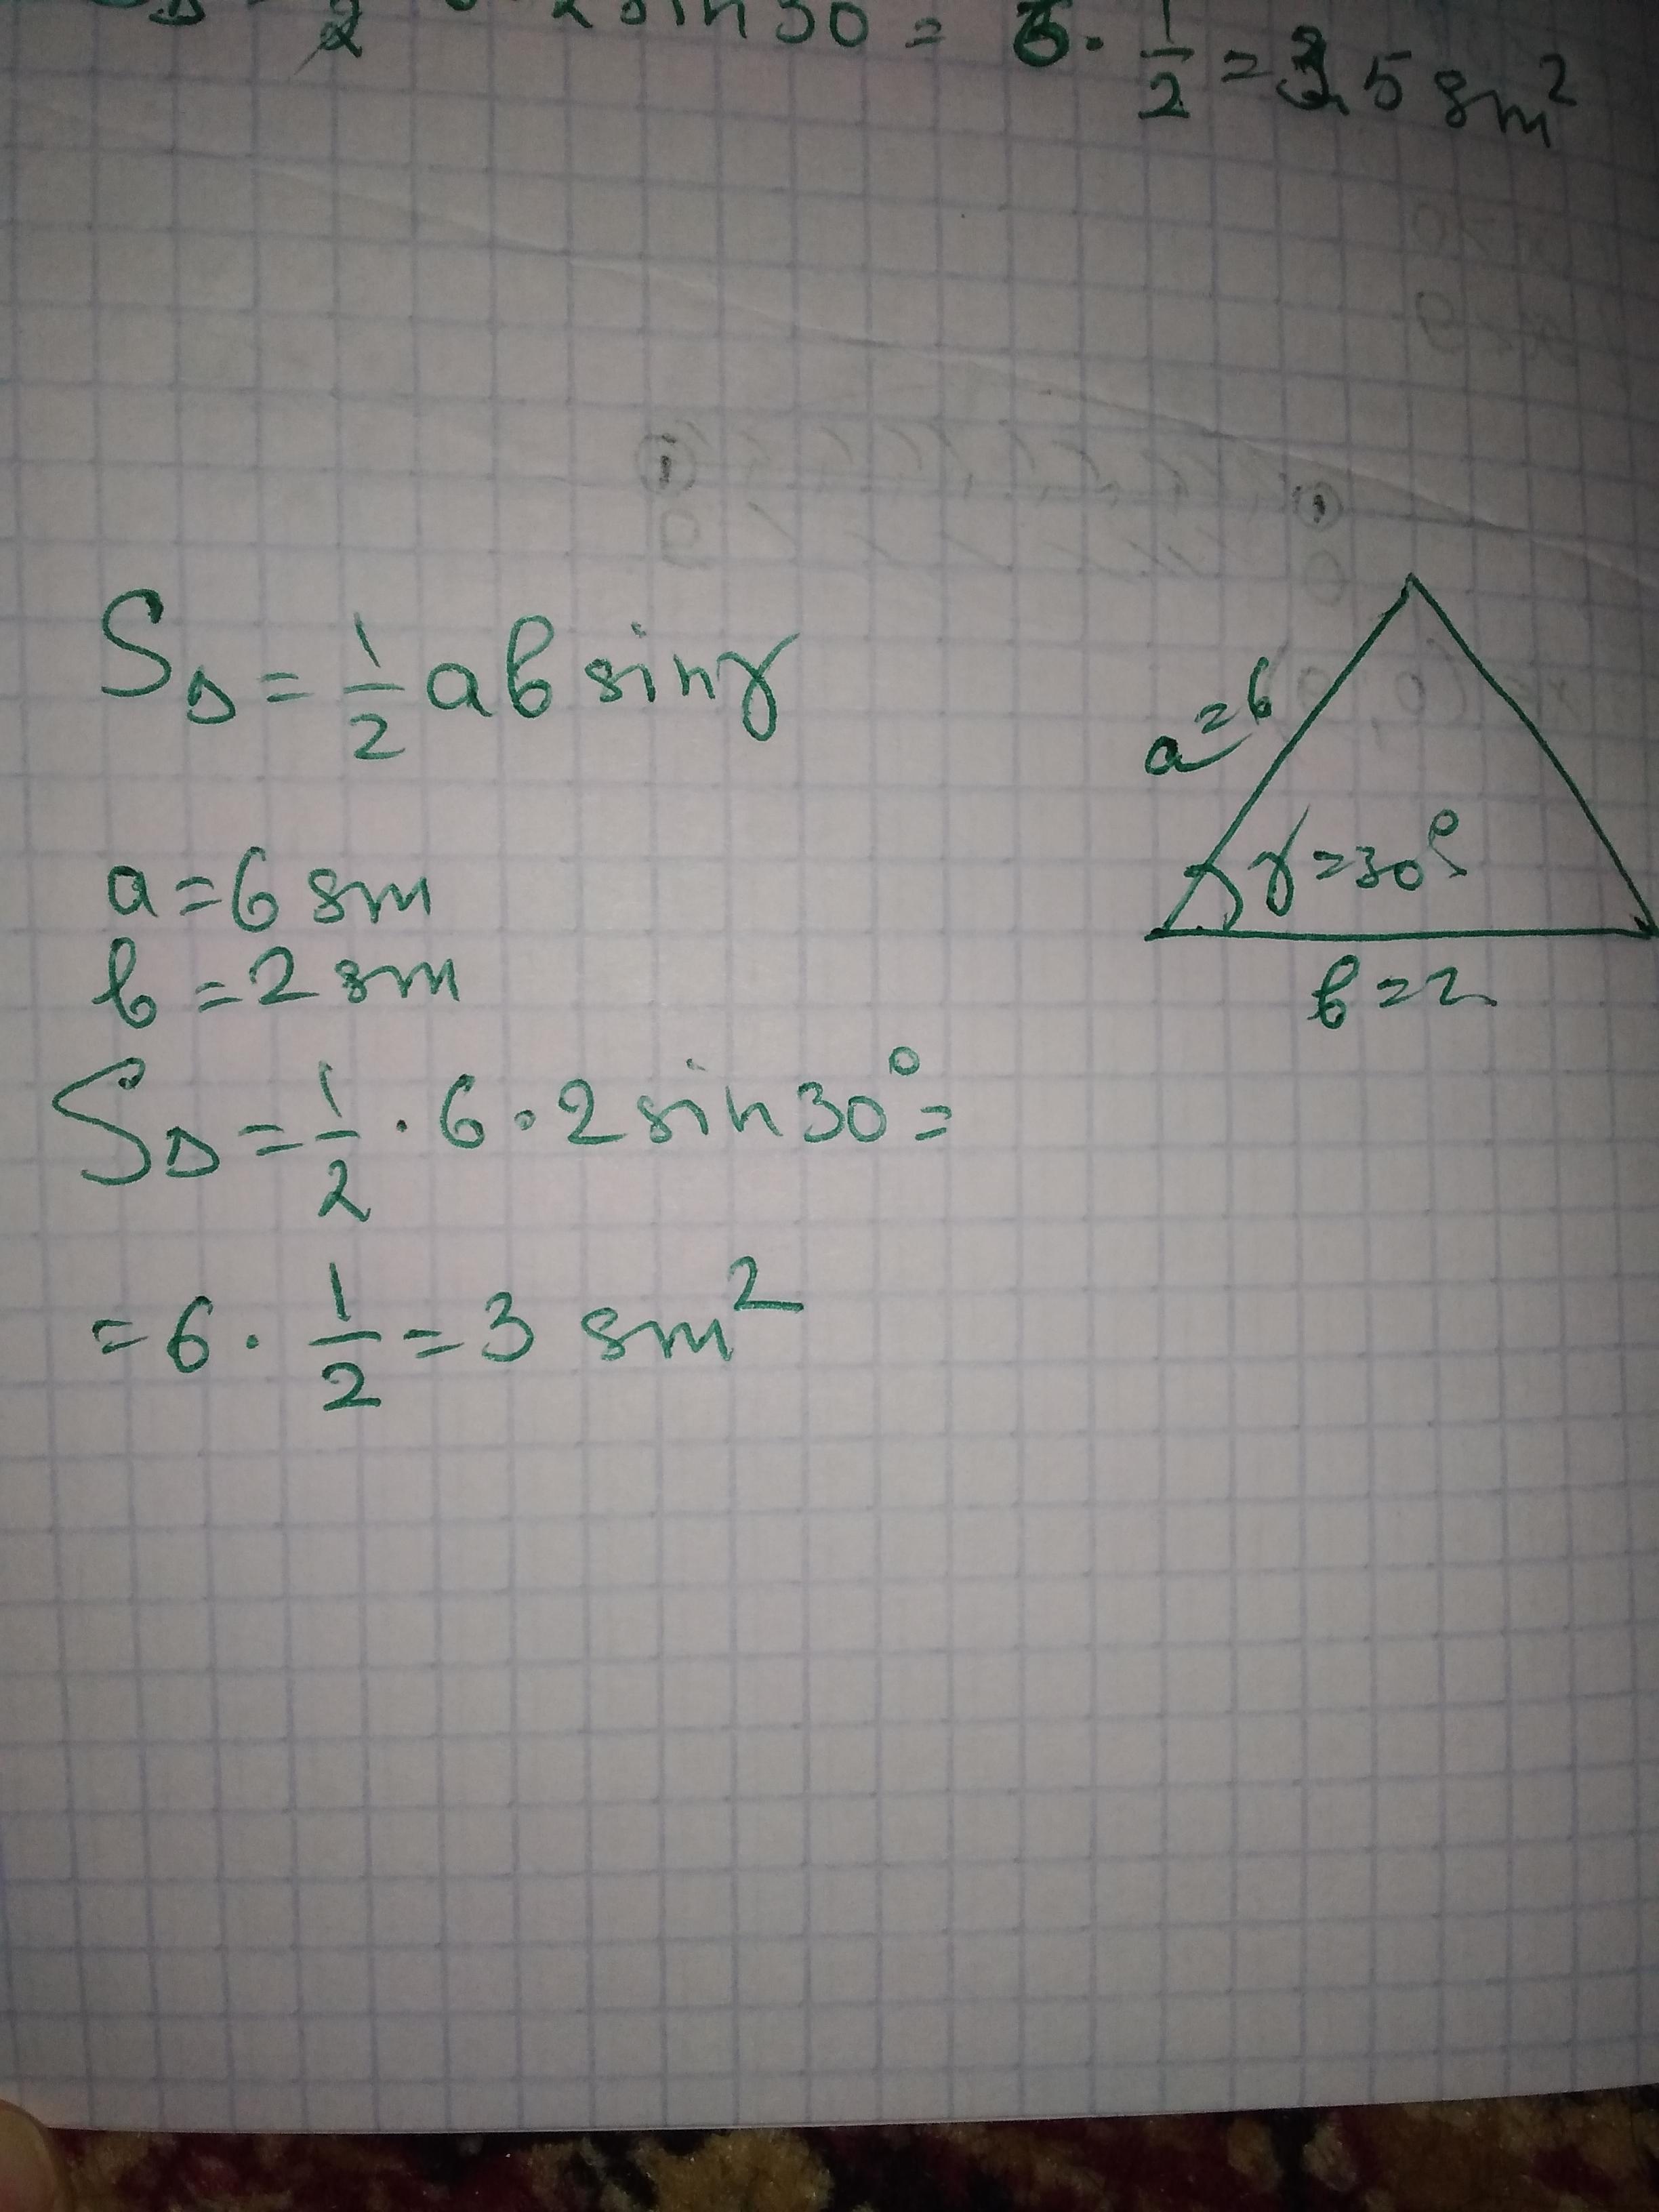 2 sin 30 = 6 · 1/2 = 3,5 sm²
S△ = 1/2 ab sinγ
a = 6
γ = 30°
b = 2
a = 6 sm
b = 2 sm
S△ = 1/2 · 6 · 2 sin 30° =
= 6 · 1/2 = 3 sm²